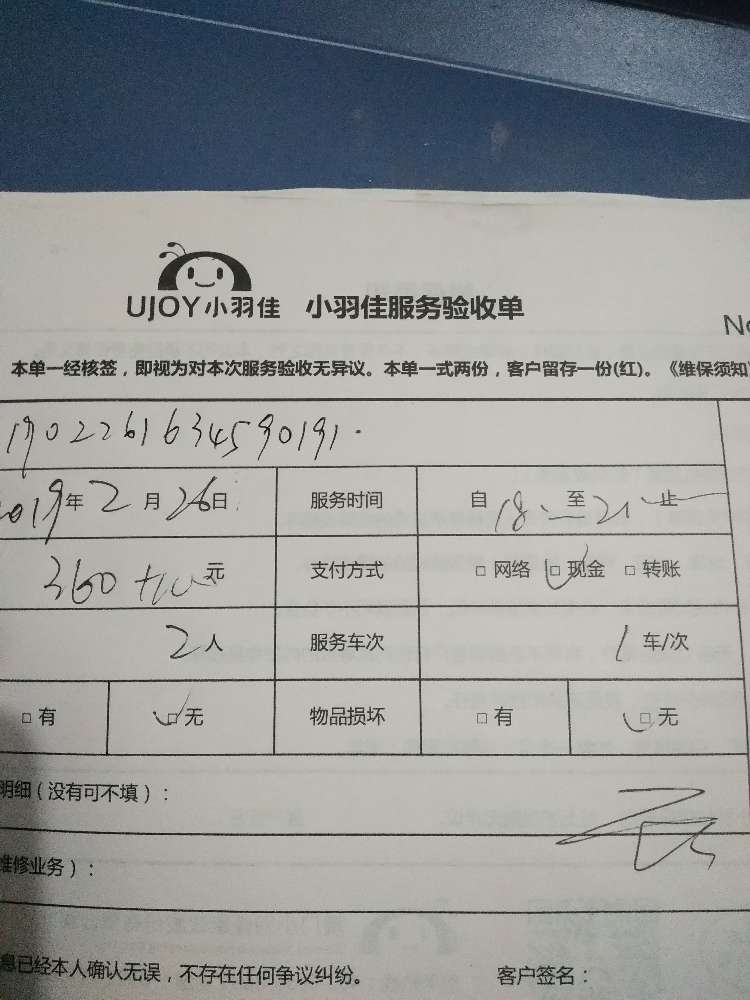 UJOY小羽佳 小羽佳服务验收单
No
本单一经核签，即视为对本次服务验收无异议。本单一式两份，客户留存一份(红)。《维保须知
1902261634590191.
2019年2月26日 服务时间 自18:至21止
360 元 支付方式 □网络 □现金 □转账
2人 服务车次 1车/次
□有 □无 物品损坏 □有 □无
明细（没有可不填）：
无
维修业务）：
息已经本人确认无误，不存在任何争议纠纷。 客户签名：